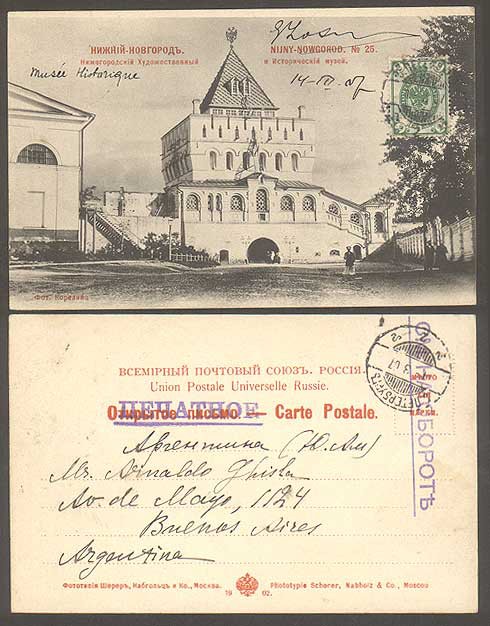 НИЖНІЙ-НОВГОРОДЪ.
NIJNY-NOWGOROD. № 25.
Нижегородскій Художественный и Историческій музей.
Musée Historique
Фот. Карелина
ВСЕМІРНЫЙ ПОЧТОВЫЙ СОЮЗЪ. РОССІЯ.
Union Postale Universelle Russie.
Открытое письмо. — Carte Postale.
ПЕЧАТНОЕ
НАОБОРОТЪ
Аргентина (Ю.Ам)
Mr. Arnaldo Ghisla
Av. de Mayo, 1124
Buenos Aires
Argentina
Фототипія Шереръ, Набгольцъ и Ко., Москва.
19 02.
Phototypie Scherer, Nabholz & Co., Moscou